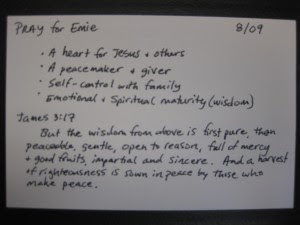 PRAY for Emie 8/09
• A heart for Jesus + others
• A peacemaker + giver
• Self-control with family
• Emotional + Spiritual maturity (wisdom)
James 3:17
But the wisdom from above is first pure, then
peaceable, gentle, open to reason, full of mercy
+ good fruits, impartial and sincere. And a harvest
of righteousness is sown in peace by those who
make peace.